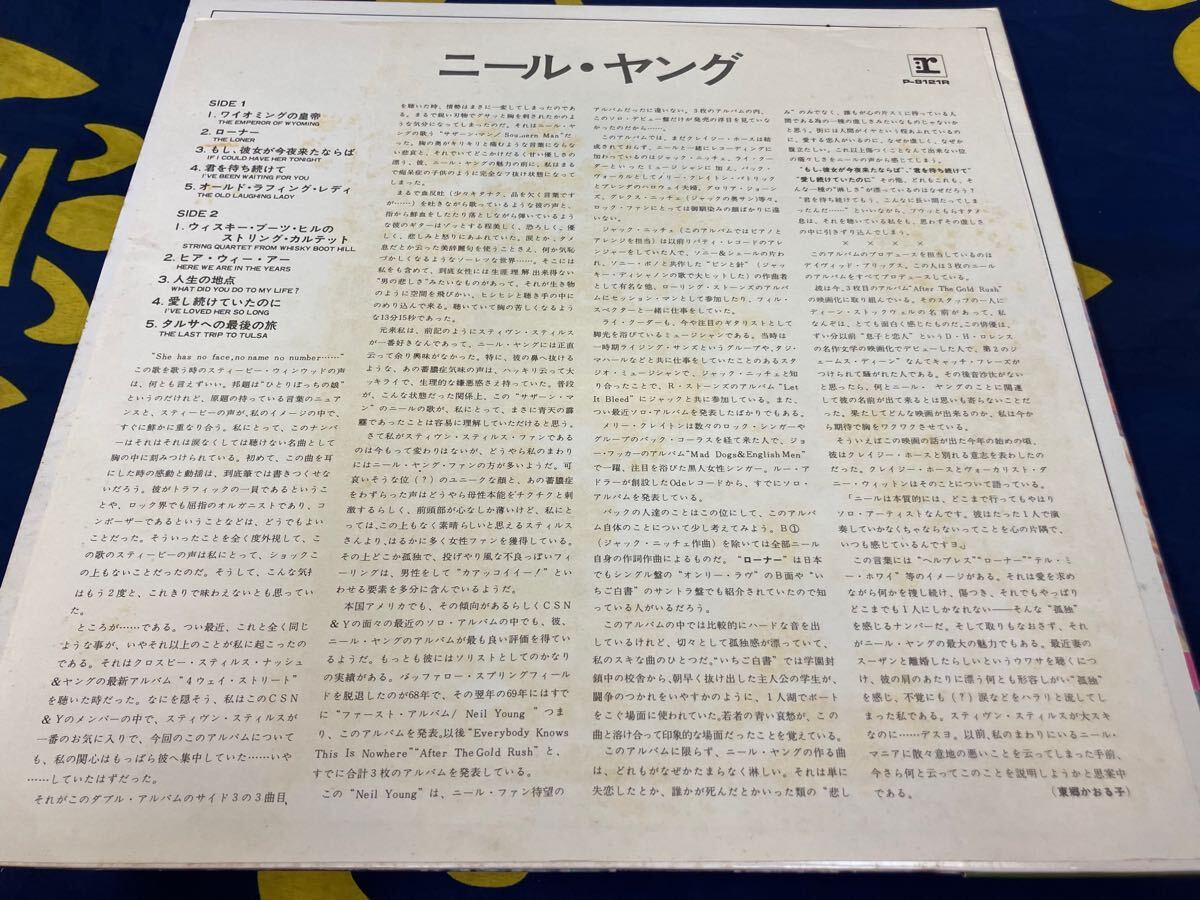 ニール・ヤング
r
P-8121R
SIDE 1
1. ワイオミングの皇帝
THE EMPEROR OF WYOMING
2. ローナー
THE LONER
3. もし、彼女が今夜来たならば
IF I COULD HAVE HER TONIGHT
4. 君を待ち続けて
I'VE BEEN WAITING FOR YOU
5. オールド・ラフィング・レディ
THE OLD LAUGHING LADY
SIDE 2
1. ウィスキー・ブーツ・ヒルの
ストリング・カルテット
STRING QUARTET FROM WHISKY BOOT HILL
2. ヒア・ウィー・アー
HERE WE ARE IN THE YEARS
3. 人生の地点
WHAT DID YOU DO TO MY LIFE?
4. 愛し続けていたのに
I'VE LOVED HER SO LONG
5. タルサへの最後の旅
THE LAST TRIP TO TULSA
“She has no face, no name no number……”
この歌を歌う時のスティービー・ウィンウッドの声
は、何とも言えずいい。邦題は“ひとりぼっちの娘”
というのだけれど、原題の持っている言葉のニュア
ンスと、スティービーの声が、私のイメージの中で、
すぐに鮮かに重なり合う。私にとって、このナンバ
ーはそれはそれは涙なくしては聴けない名曲として
胸の中に刻みつけられている。初めて、この曲を耳
にした時の感動と動揺は、到底筆では書きつくせな
いだろう。彼がトラフィックの一員であるというこ
とや、ロック界でも屈指のオルガニストであり、コ
ンポーザーであるということなどは、どうでもよい
ことだった。そういったことを全く度外視して、こ
の歌のスティービーの声は私にとって、ショックこ
の上もないことだったのだ。そうして、こんな気持
はもう2度と、これきりで味わえないとも思ってい
た。
ところが……である。つい最近、これと全く同じ
ような事が、いやそれ以上のことが私に起こったの
である。それはクロスビー・スティルス・ナッシュ
&ヤングの最新アルバム“4ウェイ・ストリート”
を聴いた時だった。なにを隠そう、私はこのCSN
&Yのメンバーの中で、スティヴン・スティルスが
一番のお気に入りで、今回のこのアルバムについて
も、私の関心はもっぱら彼へ集中していた……いや
……していたはずだった。
それがこのダブル・アルバムのサイド3の3曲目、
を聴いた時、情勢はまさに一変してしまったのであ
る。まるで鋭い刃物でグサッと胸を刺されたかのよ
うな気分になってしまったのだ。それはニール・ヤ
ングの歌う“サザーン・マン/Southern Man”だ
った。胸の奥がキリキリと痛むような言葉にならな
い悲哀と、それでいてどこかだるく甘い優しさの
漂う、彼、ニール・ヤングの魅力の前に、私はまる
で痴呆症の子供のように完全なフ抜け状態になって
しまった。
まるで血反吐(少々キタナク、品を欠く言葉です
が……)を吐きながら歌っているような彼の声と、
指から鮮血をしたたり落としながら弾いているよう
な彼のギターはゾッとする程美しく、恐ろしく、優
しく、悲しみと怒りにあふれていた。涙とか、タメ
息だとか云った美辞麗句を使うことさえ、何か気恥
づかしくなるようなソーレツな世界……。そこには
私をも含めて、到底女性には生涯理解出来得ない
“男の悲しさ”みたいなものがあって、それが生き物
のように空間を飛びかい、ヒシヒシと聴き手の中に
のめり込んで来る。聴いていて胸の苦しくなるよう
な13分15秒であった。
元来私は、前記のようにスティヴン・スティルス
が一番好きなんであって、ニール・ヤングには正直
云って余り興味がなかった。特に、彼の鼻へ抜ける
ような、あの蓄膿症気味の声は、ハッキリ云って大
ッキライで、生理的な嫌悪感さえ持っていた。普段
が、こんな状態だった関係上、この“サザーン・マ
ン”のニールの歌が、私にとって、まさに青天の霹
靂であったことは容易に理解していただけると思う。
さて私がスティヴン・スティルス・ファンである
のは今もって変わりはないが、どうやら私のまわり
にはニール・ヤング・ファンの方が多いようだ。可
哀いそうな位(?)のユニークな顔と、あの蓄膿症
をわずらった声はどうやら母性本能をチクチクと刺
激するらしく、前頭部が心なしか薄いけど、私にと
っては、この上もなく素晴らしいと思えるスティルス
さんより、はるかに多く女性ファンを獲得している。
その上どこか孤独で、投げやり風な不良っぽいフィ
ーリングは、男性をして“カアッコイイー!”とい
いわせる要素を多分に含んでいるようだ。
本国アメリカでも、その傾向があるらしくCSN
&Yの面々の最近のソロ・アルバムの中でも、彼、
ニール・ヤングのアルバムが最も良い評価を得てい
るようだ。もっとも彼にはソリストとしてのかなり
の実績がある。バッファロー・スプリングフィール
ドを脱退したのが68年で、その翌年の69年にはすで
に“ファースト・アルバム/Neil Young”つま
り、このアルバムを発表。以後“Everybody Knows
This Is Nowhere”“After The Gold Rush”と、
すでに合計3枚のアルバムを発表している。
この“Neil Young”は、ニール・ファン待望の
アルバムだったに違いない。3枚のアルバムの内、
このソロ・デビュー盤だけが発売の浮目を見ていな
かったのだから……。
このアルバムでは、まだクレイジー・ホースは結
成されておらず、ニールと一緒にレコーディングに
加わっているのはジャック・ニッチェ、ライ・クー
ダーといったミュージシャンに加え、バック・
ヴォーカルとしてメリー・クレイトン・パトリック
とブレンダのハロウェイ夫婦、グロリア・ジョーン
ズ、グレクス・ニッチェ(ジャックの奥サン)等々。
ロック・ファンにとっては御馴染みの顔ばかりに違
いない。
ジャック・ニッチェ(このアルバムではピアノと
アレンジを担当)は以前リバティ・レコードのアレ
ンジャーをしていた人で、ソニー&シェールの片わ
れ、ソニー・ボノと共作した“ピンと針”(ジャッ
キー・ディシャノンの歌で大ヒットした)の作曲者
として有名な他、ローリング・ストーンズのアルバ
ムにセッション・マンとして参加したり、フィル・
スペクターと一緒に仕事をしていた。
ライ・クーダーも、今や注目のギタリストとして
脚光を浴びているミュージシャンである。当時は
一時期ライジング・サンズというグループや、タジ・
マハールなどと共に仕事をしていたことのあるスタ
ジオ・ミュージシャンで、ジャック・ニッチェと知
り合ったことで、R・ストーンズのアルバム“Let
It Bleed”にジャックと共に参加している。また、
つい最近ソロ・アルバムを発表したばかりでもある。
メリー・クレイトンは数々のロック・シンガーや
グループのバック・コーラスを経て来た人で、ジョ
ー・コッカーのアルバム“Mad Dogs&English Men”
で一躍、注目を浴びた黒人女性シンガー。ルー・ア
ドラーが創設したOdeレコードから、すでにソロ・
アルバムを発表している。
バックの人達のことはこの位にして、このアルバ
ム自体のことについて少し考えてみよう。B①
(ジャック・ニッチェ作曲)を除いては全部ニール
自身の作詞作曲によるものだ。“ローナー”は日本
でもシングル盤の“オンリー・ラヴ”のB面や“い
ちご白書”のサントラ盤でも紹介されていたので知
っている人がいるだろう。
このアルバムの中では比較的にハードな音を出
しているけれど、切々として孤独感が漂っていて、
私のスキな曲のひとつだ。“いちご白書”では学園封
鎖中の校舎から、朝早く抜け出した主人公の学生が、
闘争のつかれをいやすかのように、1人湖でボート
をこぐ場面に使われていた。若者の青い哀愁が、こ
の曲と溶け合って印象的な場面だったことを覚えている。
このアルバムに限らず、ニール・ヤングの作る曲
は、どれもがなぜかたまらなく淋しい。それは単に
失恋したとか、誰かが死んだとかいった類の“悲し
み”のみでなく、誰もが心の片スミに持っている人
間である為の一種の虚しさみたいなものじゃないか
と思う。街には人間がイヤという程あふれているの
に、愛する恋人がいるのに、なぜか虚しく、なぜか
腹立たしい。これ以上傷つくことなんて出来ない位
の痛々しさをニールの声から感じてしまう。
“もし、彼女が今夜来たならば”、“君を待ち続けて”
“愛し続けていたのに”その他、どれもこれも、そ
んな一種の“淋しさ”が漂っているのはなぜだろう?
“君を待ち続けてもう、こんなに長い間たってしま
ったんだ……”といいながら、フウッともらすタメ
息は、それを聴いている私をも、思わずその虚しさ
の中に引きずり込んでしまう。
× × × ×
このアルバムのプロデュースを担当しているのは
デイヴィッド・ブリッグス。この人は3枚のニール
のアルバムをすべてプロデュースしている。
彼は今、3枚目のアルバム“After The Gold Rush”
の映画化に取り組んでいる。そのスタッフの一人に
ディーン・ストックウェルの名前があって、私
なんぞは、とても面白く感じたものだ。この俳優は、
ずい分以前“息子と恋人”というD・H・ロレンス
の名作文学の映画化でデビューした人で、第2のジ
ェームス・ディーンなんてキャッチ・フレーズが
つけられて騒がれた人である。その後音沙汰がない
と思ったら、何とニール・ヤングのことに関連
して彼の名前が出て来るとは思いも寄らないことだ
った。果たしてどんな映画が出来るのか、私は今か
ら期待で胸をワクワクさせている。
そういえばこの映画の話が出た今年の始めの頃、
彼はクレイジー・ホースと別れる意志を表わしたの
だった。クレイジー・ホースとヴォーカリスト・ダ
ニー・ウィットンはそのことについて語っている。
「ニールは本質的には、どこまで行ってもやはり
ソロ・アーティストなんです。彼はたった1人で演
奏していかなくちゃならないってことを心の片隅で、
いつも感じているんですヨ。」
この言葉には“ヘルプレス”“ローナー”“テル・ミ
ー・ホワイ”等のイメージがある。それは愛を求め
ながら何かを捜し続け、傷つき、それでもやっぱり
どこまでも1人にしかなれない――そんな“孤独”
を感じるナンバーだ。そして取りもなおさず、それ
がニール・ヤングの最大の魅力でもある。最近妻の
スーザンと離婚したらしいというウワサを聴くにつ
け、彼の肩のあたりに漂う何とも形容しがたい“孤独”
を感じ、不覚にも(?)涙などをハラリと流してし
まった私である。スティヴン・スティルスが大スキ
なのに……デスヨ。以前、私のまわりにいるニール・
マニアに散々意地の悪いことを云ってしまった手前、
今さら何と云ってこのことを説明しようかと思案中
である。
(東郷かおる子)